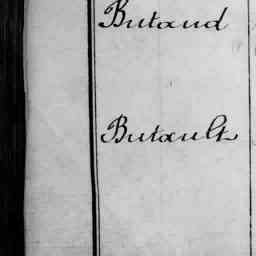 Butaud
Butault